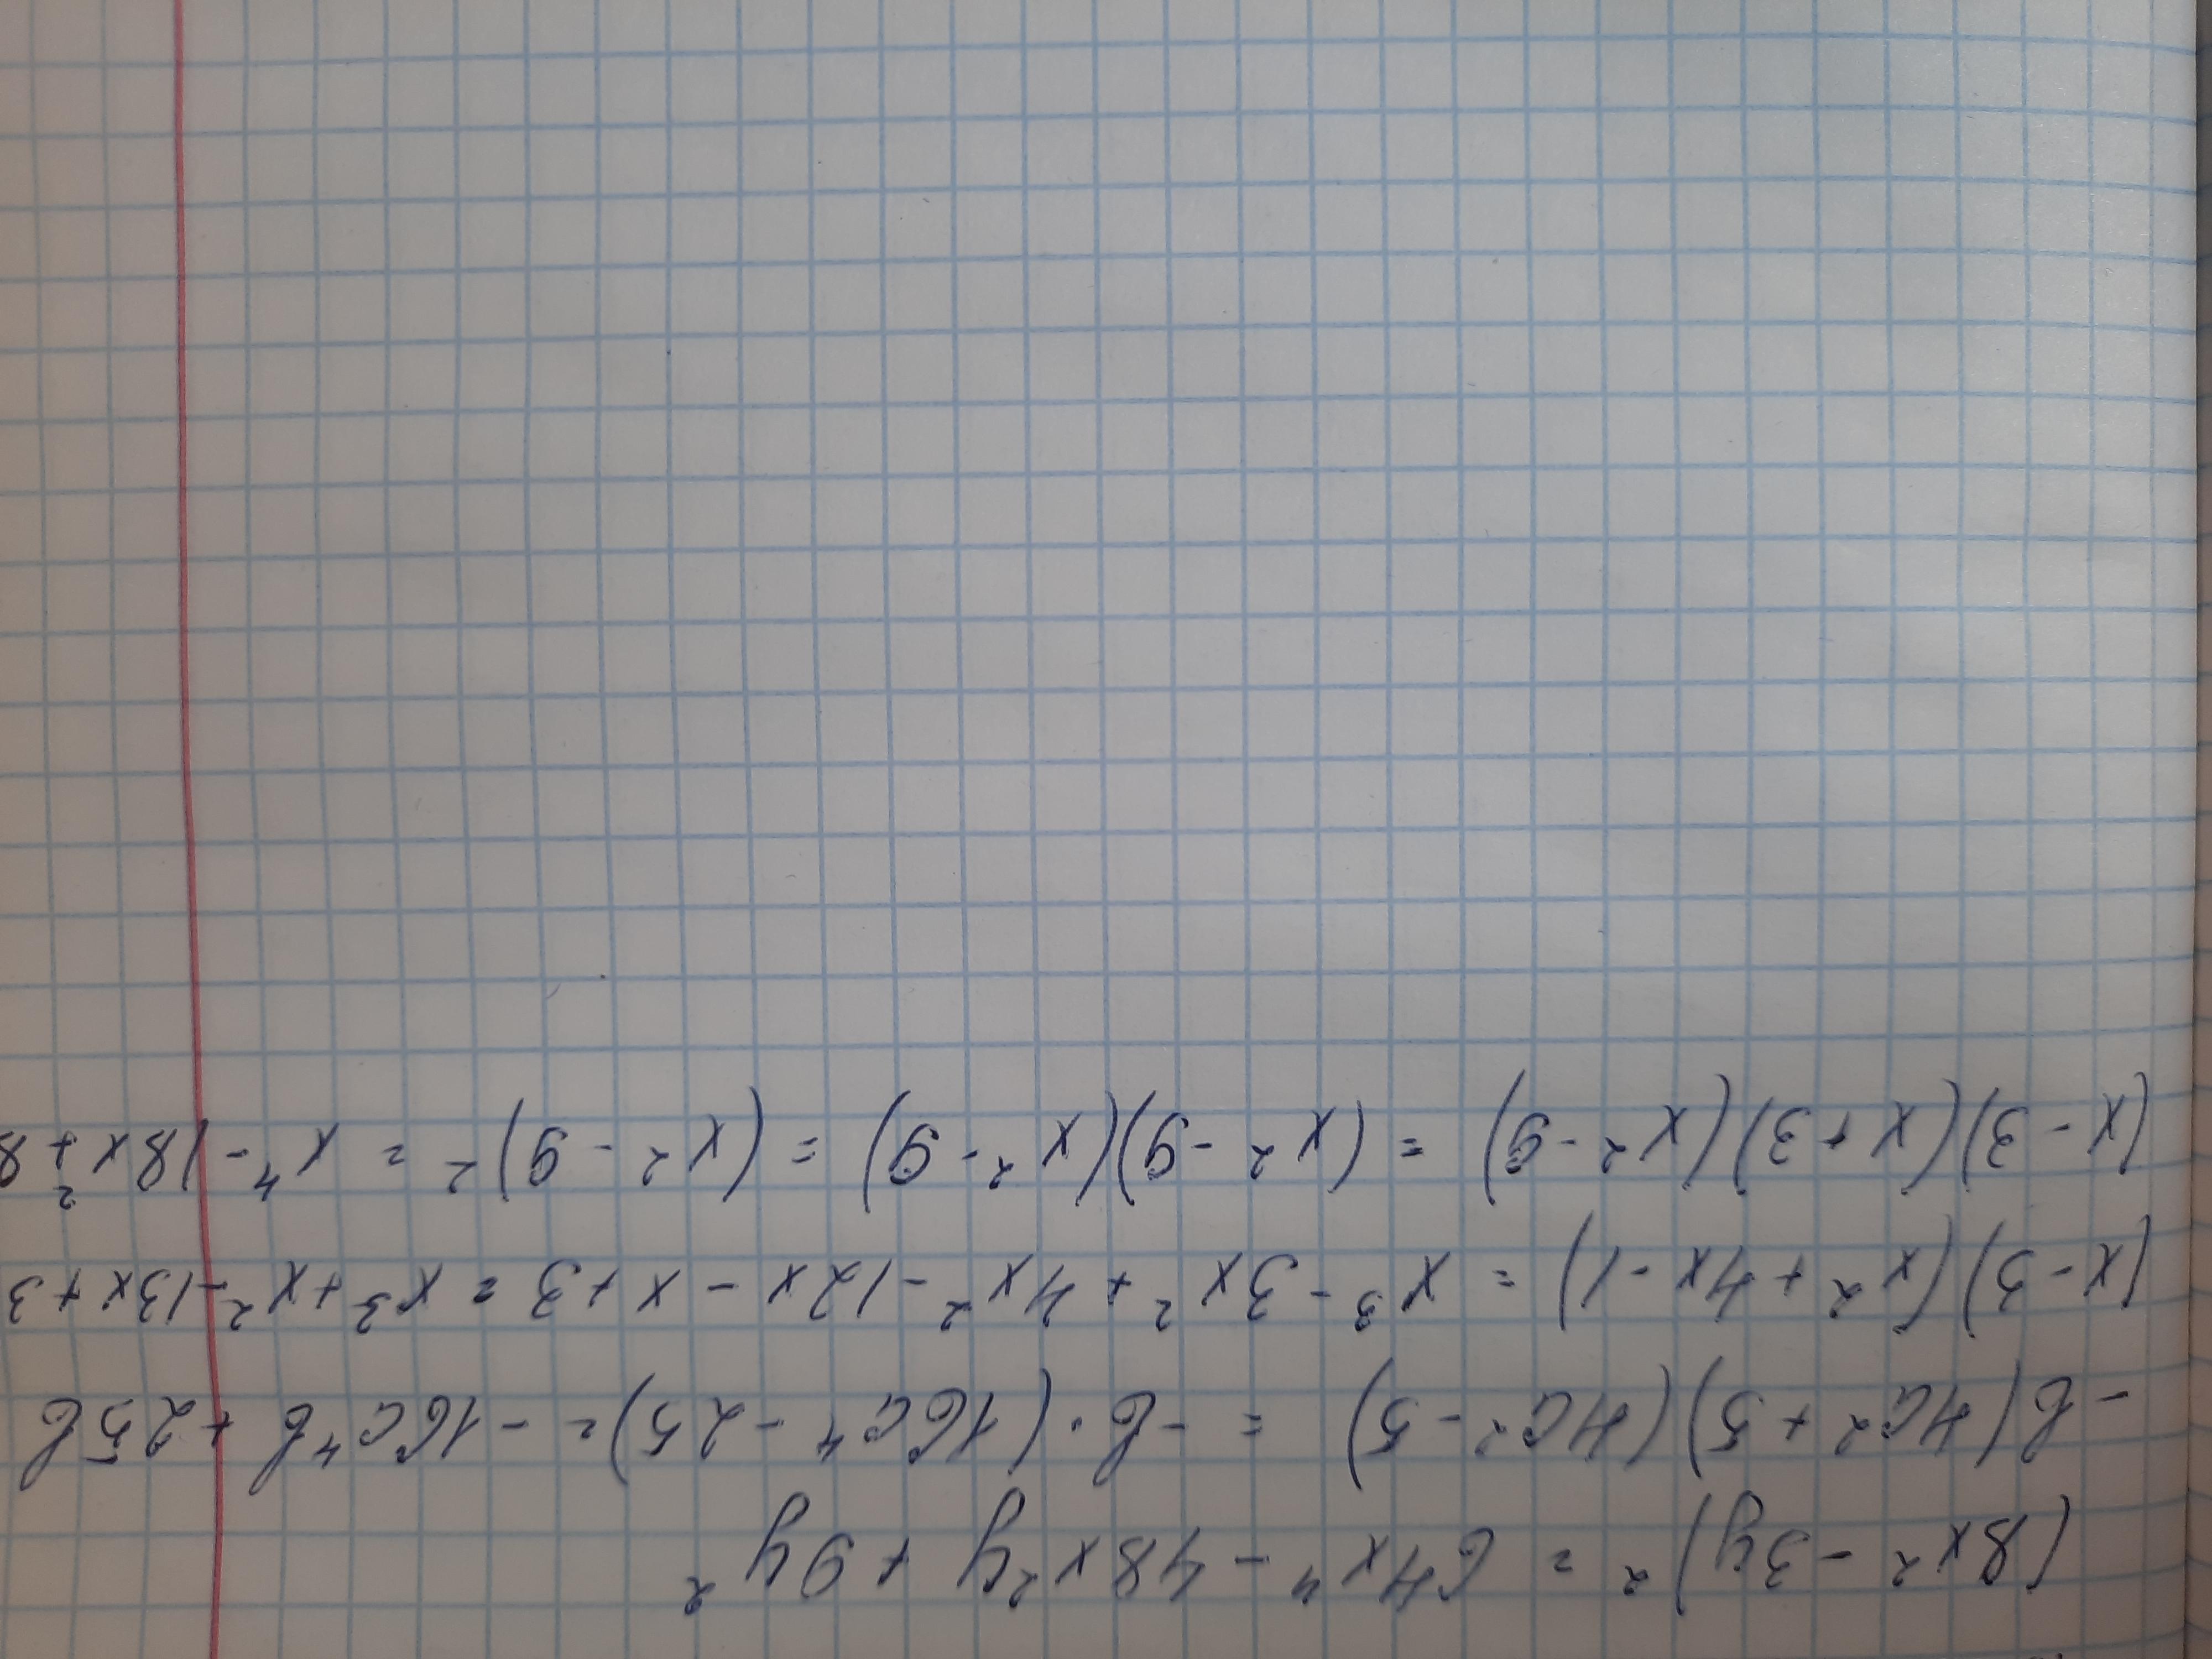 (8x² - 3y)² = 64x⁴ - 48x²y + 9y²
-b(4c² + 5)(4c² - 5) = -b·(16c⁴ - 25) = -16c⁴b + 25b
(x - 3)(x² + 4x - 1) = x³ - 3x² + 4x² - 12x - x + 3 = x³ + x² - 13x + 3
(x - 3)(x + 3)(x² - 9) = (x² - 9)(x² - 9) = (x² - 9)² = x⁴ - 18x² + 8